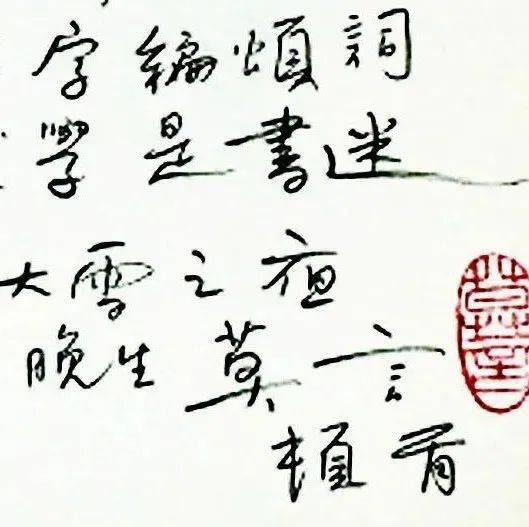 字編頌詞
學是書迷
大雪之夜
晚生莫言
頓首
莫言